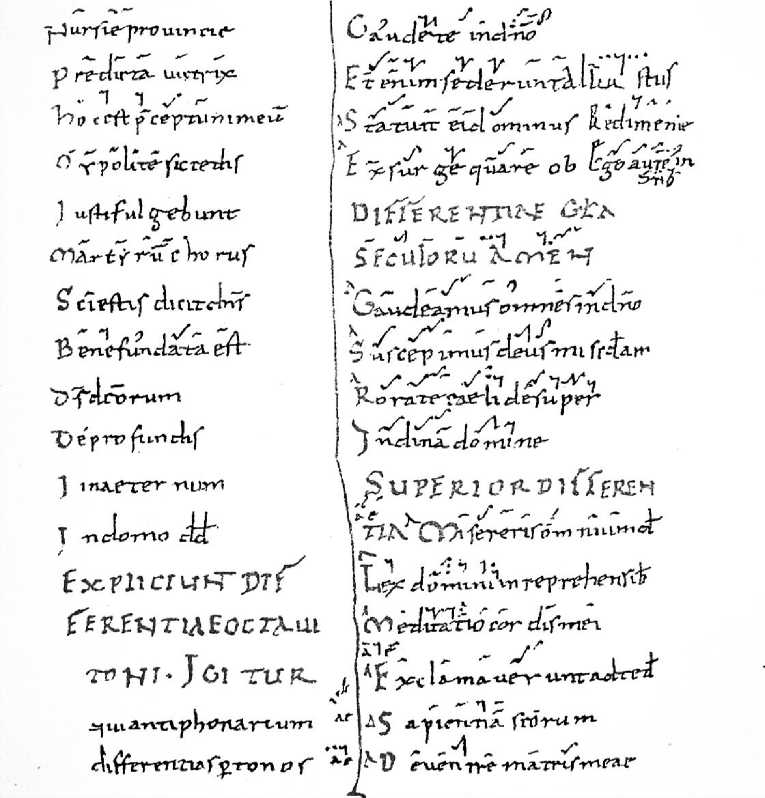 Nursiē prouincie
Prēdicta uictrix
hoc est pceptum meū
O ypolite si credis
Iusti fulgebunt
Martyrū chorus
Sci estis dicit dns
Bene fundata est
De profundis
In aeternum
In domo dd
EXPLICIUNT DIF
FERENTIAE OCTAUI
TONI · IGITUR
qui antiphonarium
differentias p tonos
Gaudete in dno
Et enim sederunt
Statuit ei dominus Redime me
Exsurge quare ob Ego autē in
DIFFERENTIAE GLA
SECULORU AMEN
Gaudeamus omnes in dno
Suscepimus deus misdam
Rorate caeli desuper
Inclina domine
SUPERIOR DIFFEREN
TIA Misereris omnium d
Lex domini inreprehensib
Meditatio cordis mei
Exclamauerunt ad te d
Sapientiā scorum
De uentre matris meae